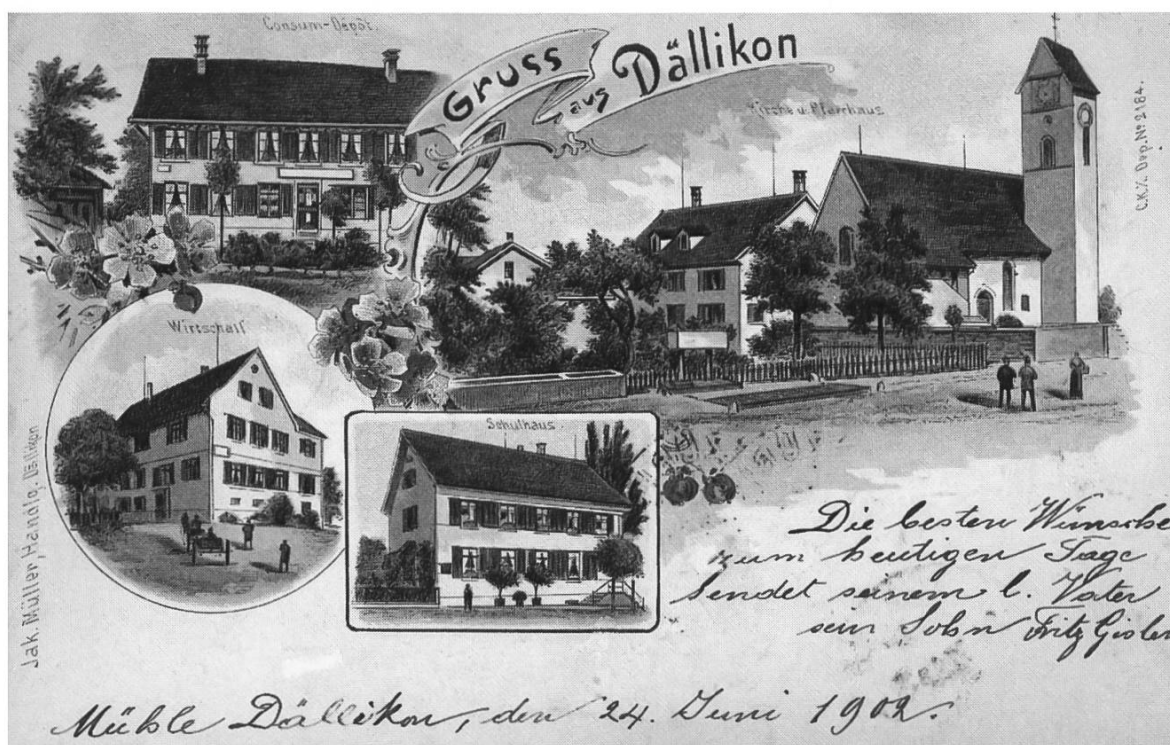 Consum-Dépôt.
Gruss
aus Dällikon
Kirche u. Pfarrhaus
C.K.Z. Dep. Nº 2184.
Wirtschaft
Schulhaus.
Jak. Müller, Handlg. Dällikon
Die besten Wünsche
zum heutigen Tage
sendet seinem l. Vater
sein Sohn Fritz Gisler
Mühle Dällikon, den 24. Juni 1902.